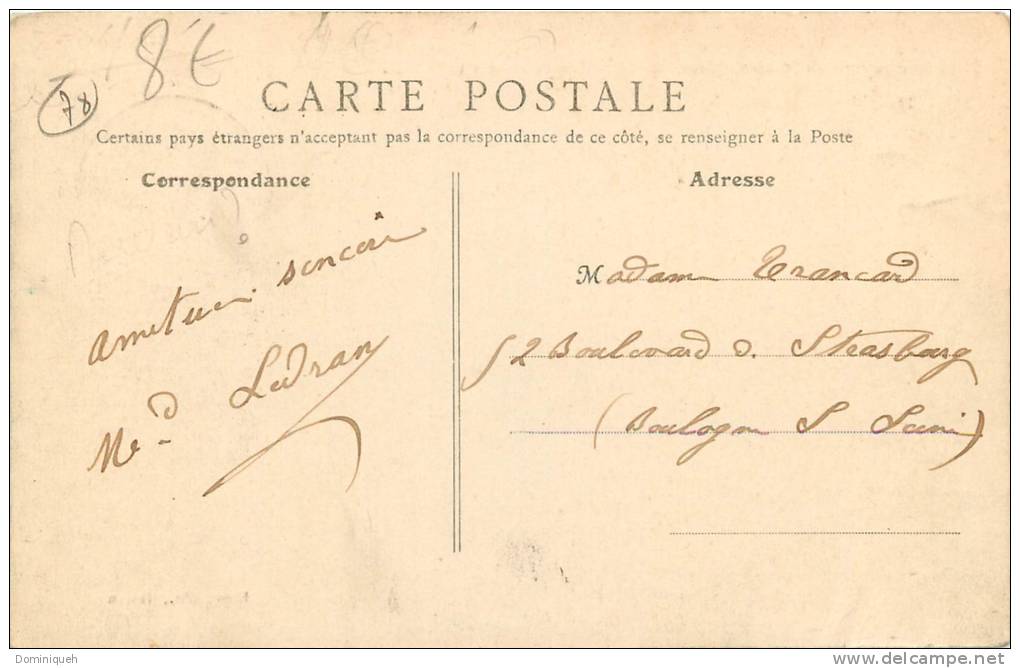 8 €
78
CARTE POSTALE
Certains pays étrangers n'acceptant pas la correspondance de ce côté, se renseigner à la Poste
Correspondance
Adresse
amitiés sincère
Me d Ledran
Madame Trancard
52 Boulevard d. Strasbourg
(Boulogne S Seine)
Dominiqueh
delcampe.net